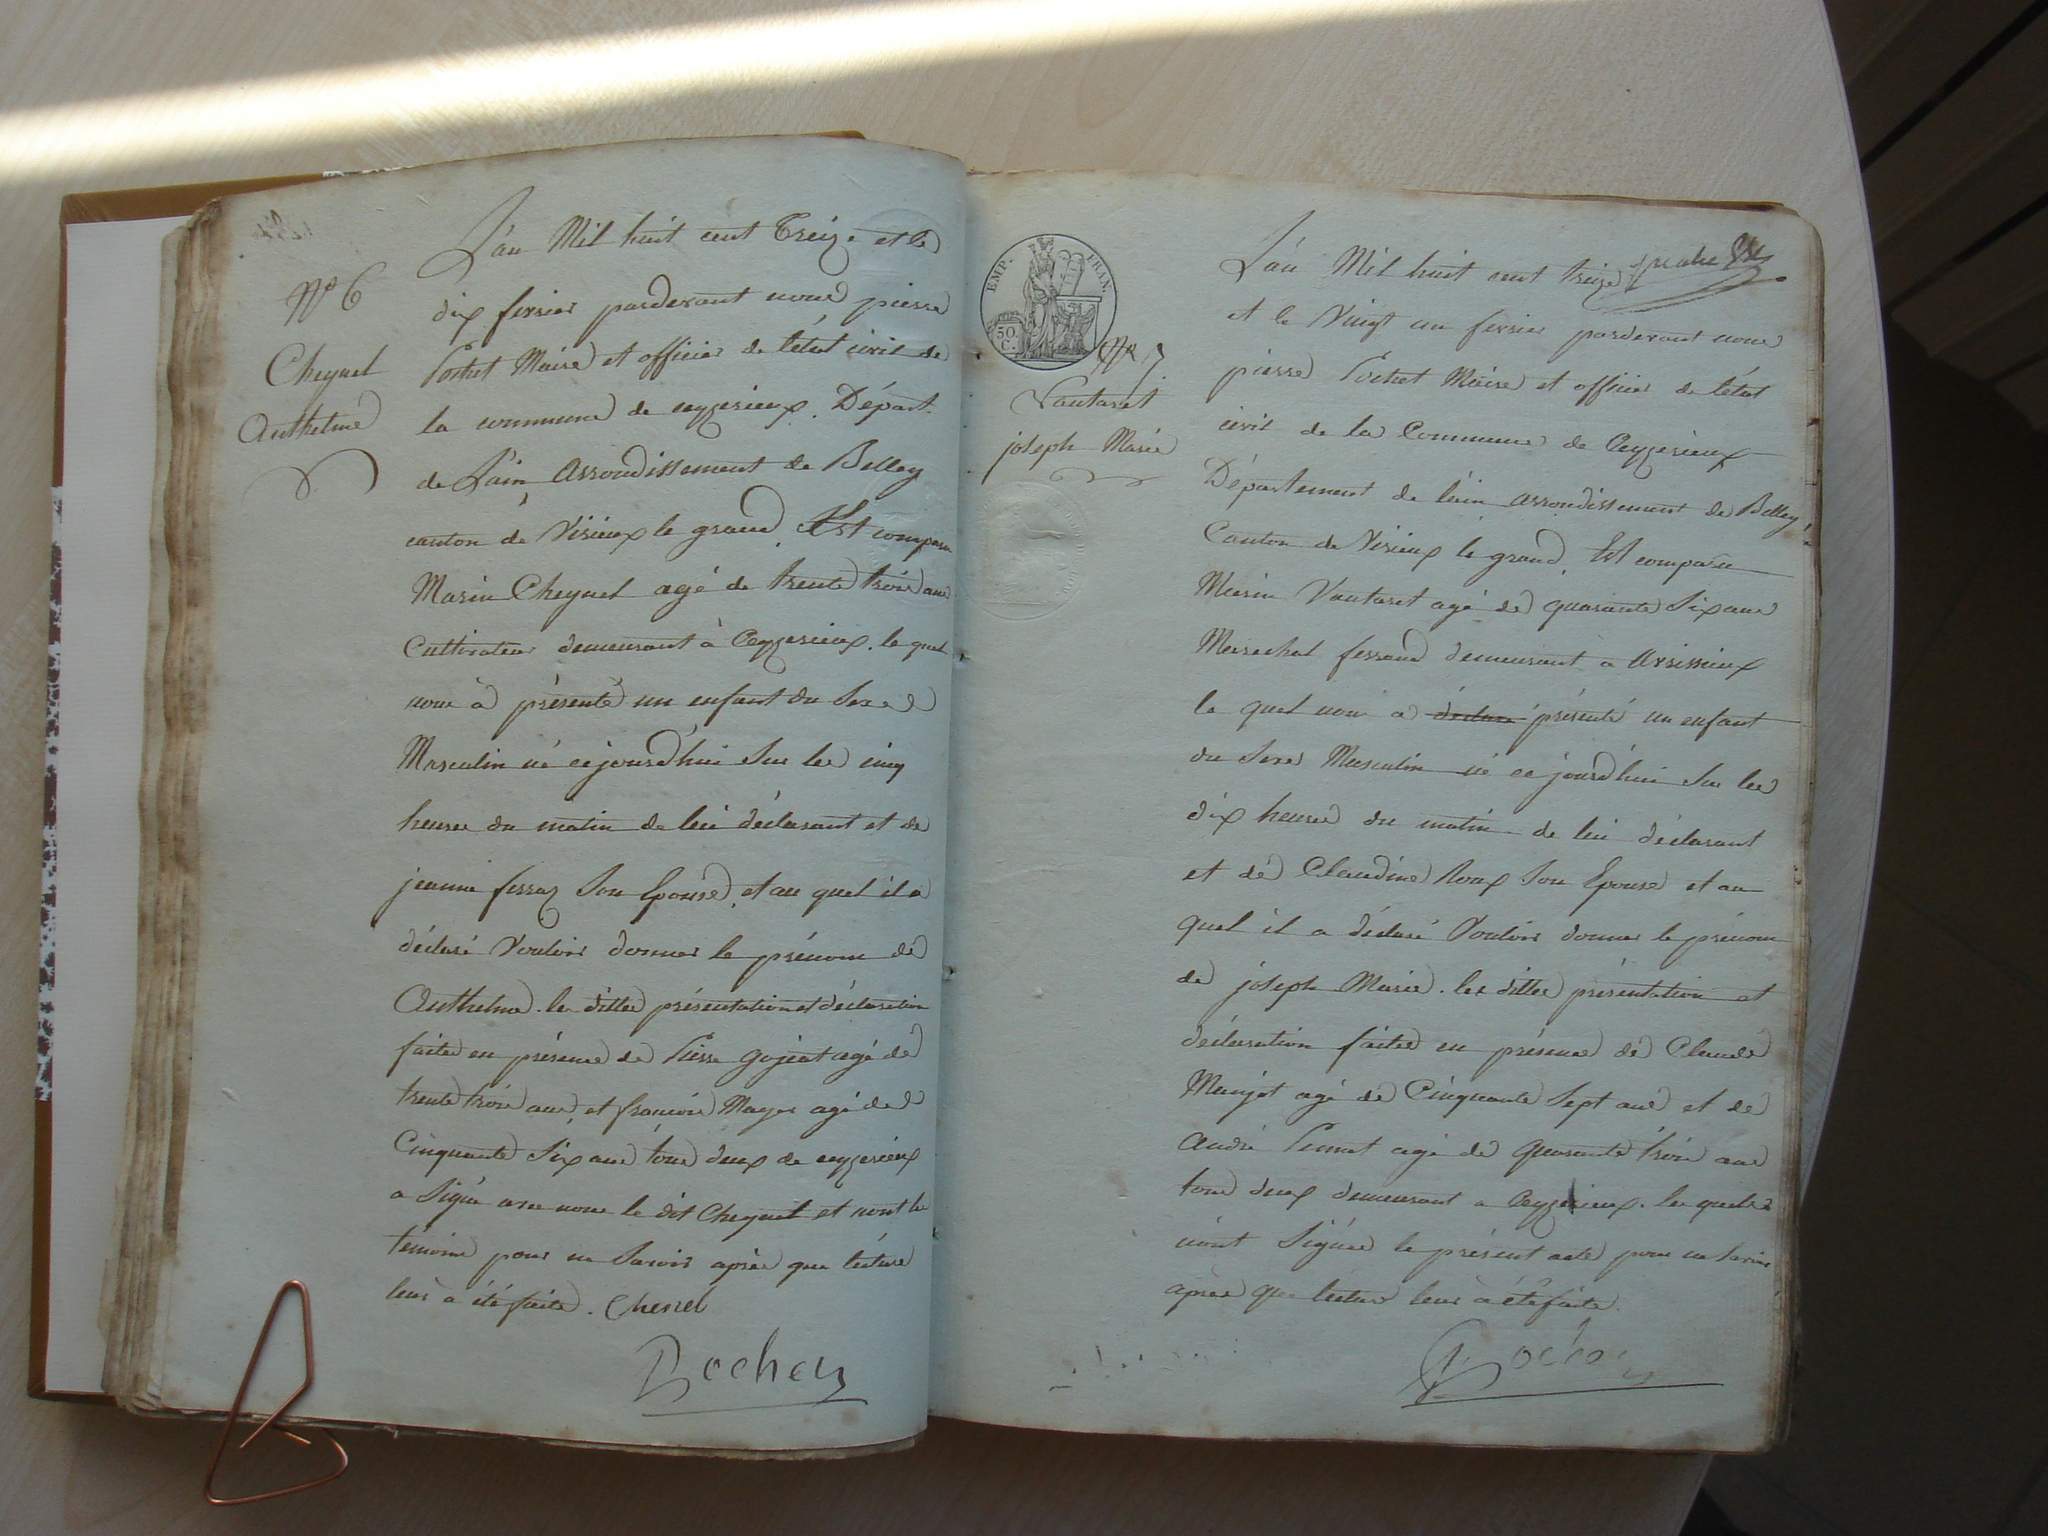 N° 6
Cheynel
Anthelme
L'an Mil huit cent Treize et le
dix fevrier pardevant nous pierre
Pochet Maire et officier de l'état civil de
la commune de ceyzerieux. Départ.
de L'ain Arrondissement de Belley
canton de Virieux le grand. Est comparu
Marin Cheynel agé de trente trois ans
Cultivateur demeurant à Ceyzerieux. le quel
nous à présenté un enfant du Sexe
Masculin né cejourd'hui Sur les cinq
heures du matin de lui déclarant et de
jeanne ferraz Son Epouse, et au quel il a
déclaré Vouloir donner le prénom de
Anthelme. les dittes présentation et déclaration
faites en présence de Pierre gojeat agé de
trente trois ans et françois Mayer agé de
Cinquante Six ans tous deux de ceyzerieux
a Signé avec nous le dit Cheynel et nont les
temoins pour ne Savoir après que lecture
leur à été faite. Chenel
Pochet
EMP. FRAN.
50 C.
N° 7
Vautaret
joseph Marie
L'an Mil huit cent treize
et le Vingt un fevrier pardevant nous
pierre Pochet Maire et officier de l'état
civil de la Commune de Ceyzerieux
Département de lain arrondissement de Belley
Canton de Virieux le grand. Est comparu
Marin Vautaret agé de quarante Six ans
Marechal ferrand demeurant a Avrissieux
le quel nous a déclaré présenté un enfant
du Sexe Masculin né ce jourd'hui Sur les
dix heures du matin de lui déclarant
et de Claudine Roux Son Epouse et au
quel il a déclaré Vouloir donner le prénom
de joseph Marie. les dittes présentation et
déclaration faites en présence de Claude
Manjot agé de Cinquante Sept ans et de
andré Pernet agé de quarante trois ans
tous deux demeurant a Ceyzerieux. les quels
nont Signés le présent acte pour ne Savoir
après que lecture leur à été faite.
Pochet